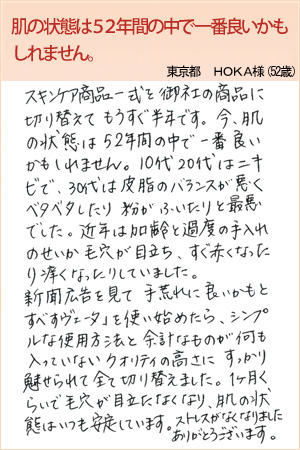 肌の状態は５２年間の中で一番良いかも
しれません。
東京都　ＨＯＫＡ様（52歳）
スキンケア商品一式を御社の商品に
切り替えてもうすぐ半年です。今、肌
の状態は５２年間の中で一番良い
かもしれません。10代20代はニキ
ビで、30代は皮脂のバランスが悪く
ベタベタしたり粉がふいたりと最悪
でした。近年は加齢と過度の手入れ
のせいか毛穴が目立ち、すぐ赤くなった
り痒くなったりしていました。
新聞広告を見て手荒れに良いかもと
すべすべヴェータ」を使い始めたら、シンプ
ルな使用方法と余計なものが何も
入っていないクオリティの高さにすっかり
魅せられて全て切り替えました。1ヶ月く
らいで毛穴が目立たなくなり、肌の状
態はいつも安定しています。ストレスがなくなりました
ありがとうございます。